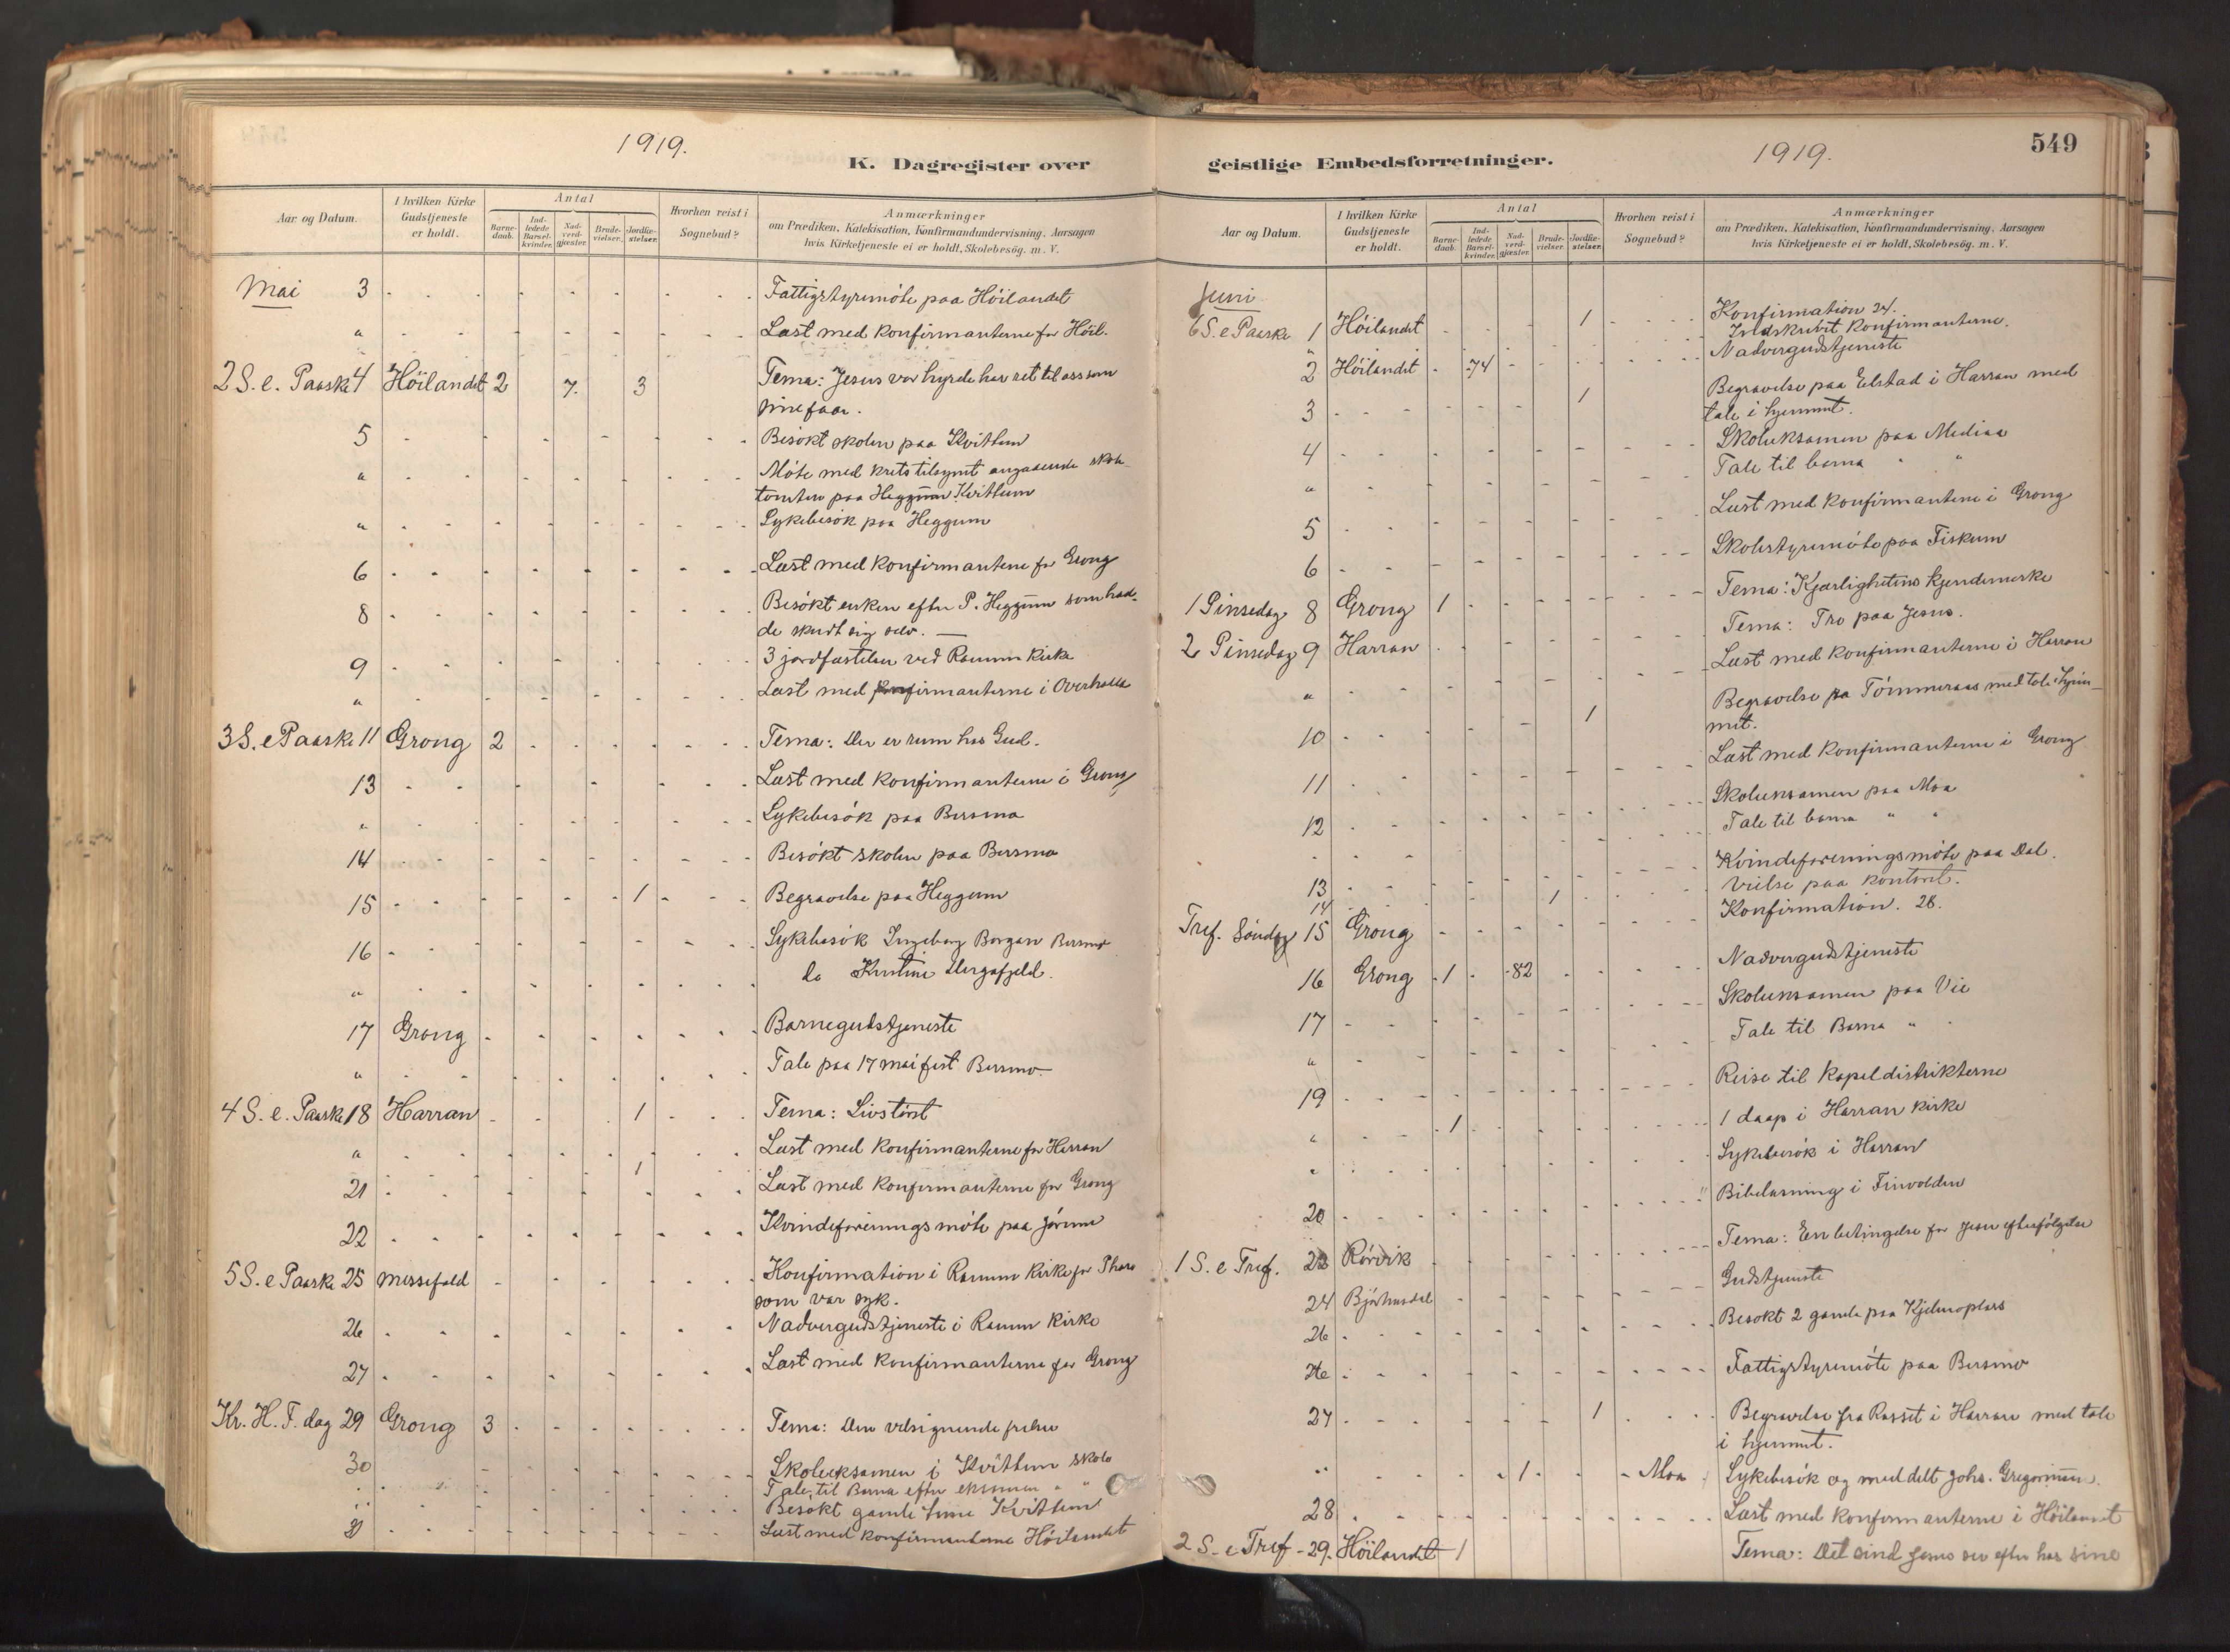 1919.
K. Dagregister over
Aar og Datum.
I hvilken Kirke Gudstjeneste er holdt.
Antal
Barne-daab.
Ind-ledede Barsel-kvinder.
Nad-verd-gjæster.
Brude-vielser.
Jordfæ-stelser.
Hvorhen reist i Sognebud?
Anmærkninger
om Prædiken, Katekisation, Konfirmandundervisning, Aarsagen
hvis Kirketjeneste ei er holdt, Skolebesøg. m. V.
Mai 3 Fattigstyremöte paa Höilandet
" Læst med konfirmanterne for Höil.
2 S. e. Paaske 4 Höilandet 2 7. 3 Tema: Jesus vor hyrde har ret til oss som
sine faar.
5 Besökt skolen paa Kvittum
" Möte med kretstilsynet angaaende skole-
tomten paa Heggum Kvittum
" Sykebesök paa Heggum
6 Læst med konfirmantene for Grong
8 Besökt enken efter P. Heggum som had-
de skudt sig selv. —
9 3 jordfæstelser ved Ranum kirke
" Læst med konfirmanterne i Overhalla
3 S. e Paaske 11 Grong 2 Tema: Der er rum hos Gud.
13 Læst med konfirmanterne i Grong
" Sykebesök paa Bersmo
14 Besökt skolen paa Bersmo
15 1 Begravelse paa Heggum
16 Sykebesök Ingeborg Borgan Bersmo
" do Kristine
17 Grong Barnegudstjeneste
" Tale paa 17 mai fest Bersmo
4 S. e. Paaske 18 Harran 1 Tema: Livstörst
" 1 Læst med konfirmanterne for Harran
21 Læst med konfirmanterne for Grong
22 Kvindeforenings möte paa Jörum
5 S. e Paaske 25 Konfirmation i Ranum kirke for
som var syk.
26 Nadvergudstjeneste i Ranum kirke
27 Læst med konfirmanterne for Grong
Kr. H. F. dag 29 Grong 3 Tema: Den velsignende frelser
30 Skoleeksamen i Kvittum skole
" Tale til Barna efter eksamen " "
" Besökt gamle Kvittum
31 Læst med konfirmanterne Höilandet
1919.
549
geistlige Embedsforretninger.
Aar og Datum.
I hvilken Kirke Gudstjeneste er holdt.
Antal
Barne-daab.
Ind-ledede Barsel-kvinder.
Nad-verd-gjæster.
Brude-vielser.
Jordfæ-stelser.
Hvorhen reist i Sognebud?
Anmærkninger
om Prædiken, Katekisation, Konfirmandundervisning, Aarsagen
hvis Kirketjeneste ei er holdt, Skolebesög. m. V.
Juni
6 S. e Paaske 1 Höilandet 1 Konfirmation 24.
" Indskrevet konfirmanterne.
2 Höilandet 74 Nadvergudstjeneste
3 1 Begravelse paa Elstad i Harran med
tale i hjemmet.
4 Skoleeksamen paa Mediaa
" Tale til barna " "
5 Læst med konfirmantene i Grong
6 Skolestyremöte paa Fiskum
1 Pinsedag 8 Grong 1 Tema: Kjærlighetens kjendemerke
2 Pinsedag 9 Harran Tema: Tro paa Jesus.
" Læst med konfirmanterne i Harran
10 1 Begravelse paa Tömmeraas med tale i hjem-
met.
11 Læst med konfirmanterne i Grong
12 Skoleeksamen paa Moa
" Tale til barna " "
13 Kvindeforeningsmöte paa Dal.
14 1 Vielse paa kontoret.
Tref. Söndag 15 Grong Konfirmation. 28.
16 Grong 1 82 Nadvergudstjeneste
17 Skoleeksamen paa Vie
" Tale til Barna "
19 Reise til kapeldistrikterne
" 1 1 daap i Harran kirke
" Sykebesök i Harran
20 Bibellæsning i Finvolden
1 S. e Tref. 22 Rörvik Tema: En betingelse for Jesu efterfölgelse
24 Björhusdal Gudstjeneste
26 Besökt 2 gamle paa Kjelmoplass
26 Fattigstyremöte paa Bersmo
27 1 Begravelse fra Rosset i Harran med tale
i hjemmet.
" 1 Moa Sykebesök og meddelt Johs. Gregorius
28 Læst med konfirmanterne i Höilandet
2 S. e Tref 29. Höilandet 1 Tema: Det sind Jesus ser efter hos sine